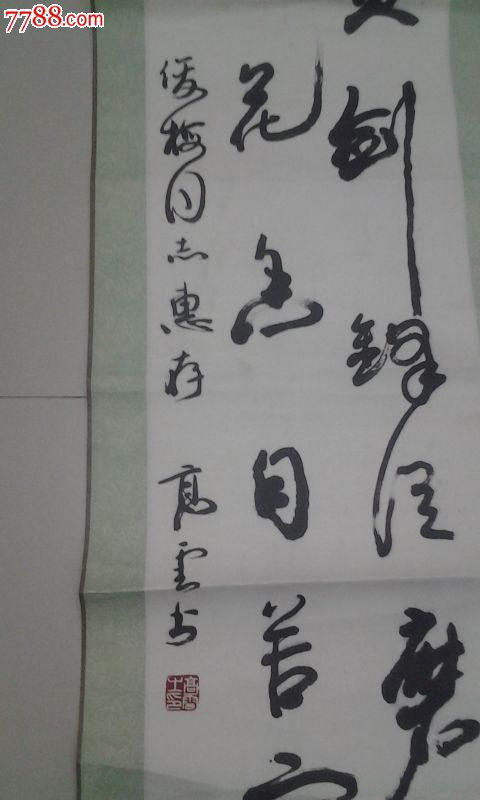 7788.com
剑锋从磨
花香自苦
俊梅同志惠存 高云书